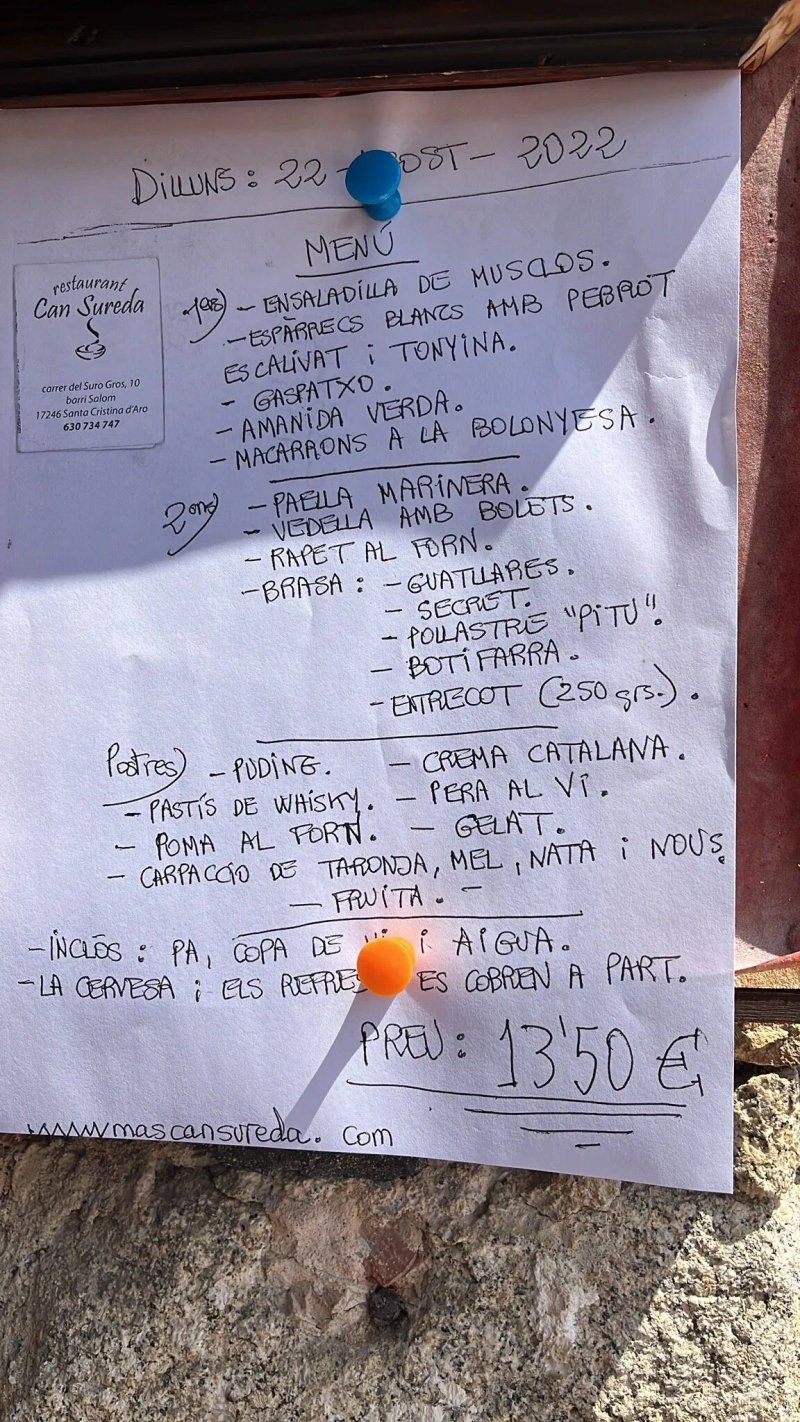 DILLUNS: 22 - AGOST - 2022
restaurant
Can Sureda
carrer del Suro Gros, 10
barri Salom
17246 Santa Cristina d'Aro
630 734 747
MENÚ
1ers) - ENSALADILLA DE MUSCLOS.
- ESPÀRRECS BLANCS AMB PEBROT
ESCALIVAT i TONYINA.
- GASPATXO.
- AMANIDA VERDA.
- MACARRONS A LA BOLONYESA.
2ons) - PAELLA MARINERA.
- VEDELLA AMB BOLETS.
- RAPET AL FORN.
- BRASA: - GUATLLARES.
- SECRET.
- POLLASTRE "PITU".
- BOTIFARRA.
- ENTRECOT (250 grs.).
Postres) - PUDING. - CREMA CATALANA.
- PASTÍS DE WHISKY. - PERA AL VI.
- POMA AL FORN. - GELAT.
- CARPACCIO DE TARONJA, MEL, NATA i NOUS.
- FRUITA. -
- INCLÒS: PA, COPA DE VI i AIGUA.
- LA CERVESA i ELS REFRES ES COBREN A PART.
PREU: 13'50 €
www.mascansureda.com